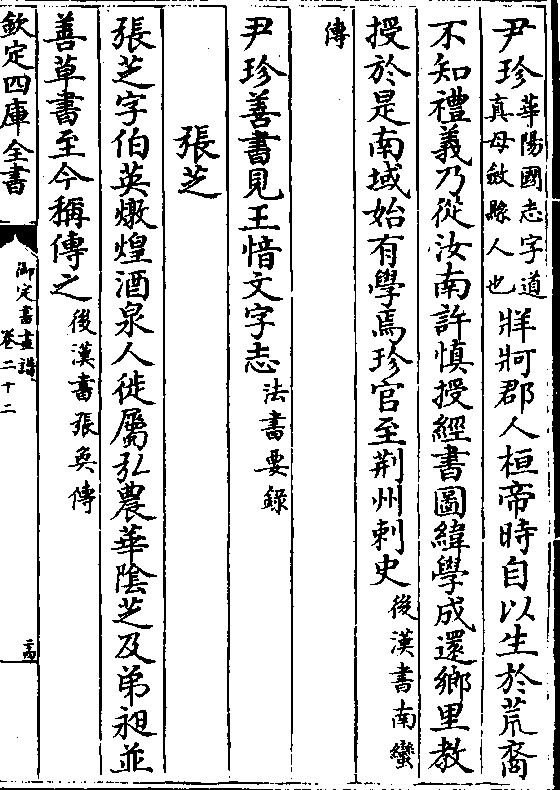 尹珍華陽國志字道
真母斂縣人也牂牁郡人桓帝時自以生於荒裔
不知禮義乃從汝南許慎授經書圖緯學成還鄉里教
授於是南域始有學焉珍官至荆州刺史後漢書南蠻
傳
尹珍善書見王愔文字志法書要錄
張芝
張芝字伯英燉煌酒泉人徙屬弘農華陰芝及弟昶並
善草書至今稱傳之後漢書張奐傳
欽定四庫全書
御定書畫譜
卷二十二